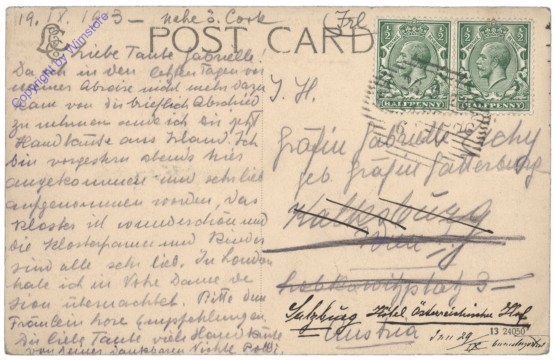 19. IX. 1913 - nahe b. Cork (Irl.
POST CARD
Liebe Tante Gabrielle!
Da ich in den letzten Tagen vor
meiner Abreise nicht mehr dazu
kam von dir brieflich Abschied
zu nehmen sende ich dir jetzt
Handküsse aus Irland. Ich
bin vorgestern abends hier
angekommen und sehr lieb
aufgenommen worden, das
Kloster ist wunderschön und
die Klosterfrauen und Kinder
sind alle sehr lieb. In London
habe ich in Notre Dame de
Sion übernachtet. Bitte dem
Fräulein Empfehlungen
Dir liebe Tante viele Handküsse
von deiner dankbaren Nichte
HALFPENNY
HALFPENNY
I. H.
Gräfin Gabrielle
geb. Gräfin Hatzenburg
Kalksburg
Wien
Lobkowitzplatz 3
Salzburg Hotel Österreichischer Hof
Austria
13 24050
Copyright by Wimstore